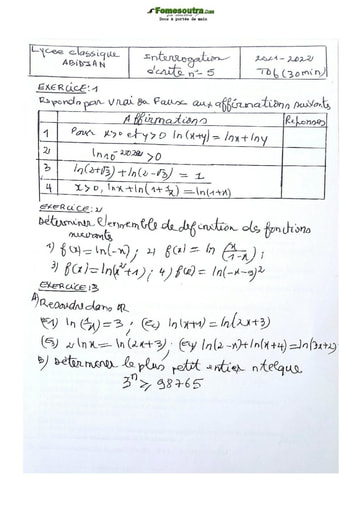 Fomesoutra.com
Docs à portée de main
Lycee classique ABIDJAN
Interrogation écrite n°- 5
2021-2022
TD6 (30min)
EXERCICE: 1
Reponds par vrai ou Faux aux affirmations suivantes
Affirmations Reponses
1 Pour x>0 et y>0 ln(x+y) = lnx + lny
2 ln10^-2022 >0
3 ln(2+√3) + ln(2-√3) = 1
4 x>0, lnx + ln(1+1/x) = ln(1+x)
EXERCICE: 2
Determiner l'ensemble de definition des fonctions
suivantes
1) f(x) = ln(-x) ; 2) f(x) = ln(x/(1-x)) ;
3) f(x) = ln(x²+1) ; 4) f(x) = ln(-x-9)²
EXERCICE: 3
A) Resoudre dans IR
(E1) ln(1/x) = 3 ; (E2) ln(x+1) = ln(2x+3)
(E3) 2lnx = ln(2x+3) ; (E4) ln(2-x) + ln(x+4) = ln(3x+2)
B) Determiner le plus petit entier n telque
3^n ≥ 98765